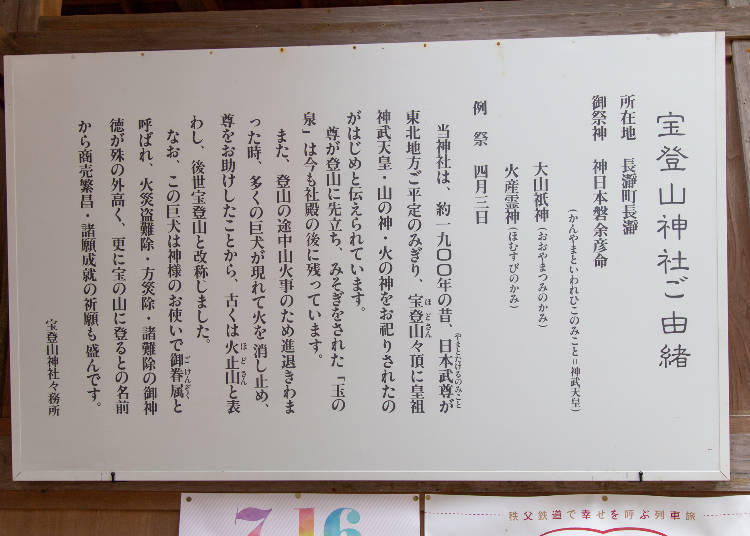 宝登山神社ご由緒
所在地　長瀞町長瀞
御祭神　神日本磐余彦命
（かんやまといわれひこのみこと＝神武天皇）
大山祇神（おおやまつみのかみ）
火産霊神（ほむすびのかみ）
例　祭　四月三日
当神社は、約一九〇〇年の昔、日本武尊が
やまとたけるのみこと
東北地方ご平定のみぎり、宝登山々頂に皇祖
ほどさん
神武天皇・山の神・火の神をお祀りされたの
がはじめと伝えられています。
尊が登山に先立ち、みそぎをされた「玉の
泉」は今も社殿の後に残っています。
また、登山の途中山火事のため進退きわま
った時、多くの巨犬が現れて火を消し止め、
尊をお助けしたことから、古くは火止山と表
ほどさん
わし、後世宝登山と改称しました。
なお、この巨犬は神様のお使いで御眷属と
ごけんぞく
呼ばれ、火災盗難除・方災除・諸難除の御神
徳が殊の外高く、更に宝の山に登るとの名前
から商売繁昌・諸願成就の祈願も盛んです。
宝登山神社々務所
7 16
秩父鉄道で幸せを呼ぶ列車旅